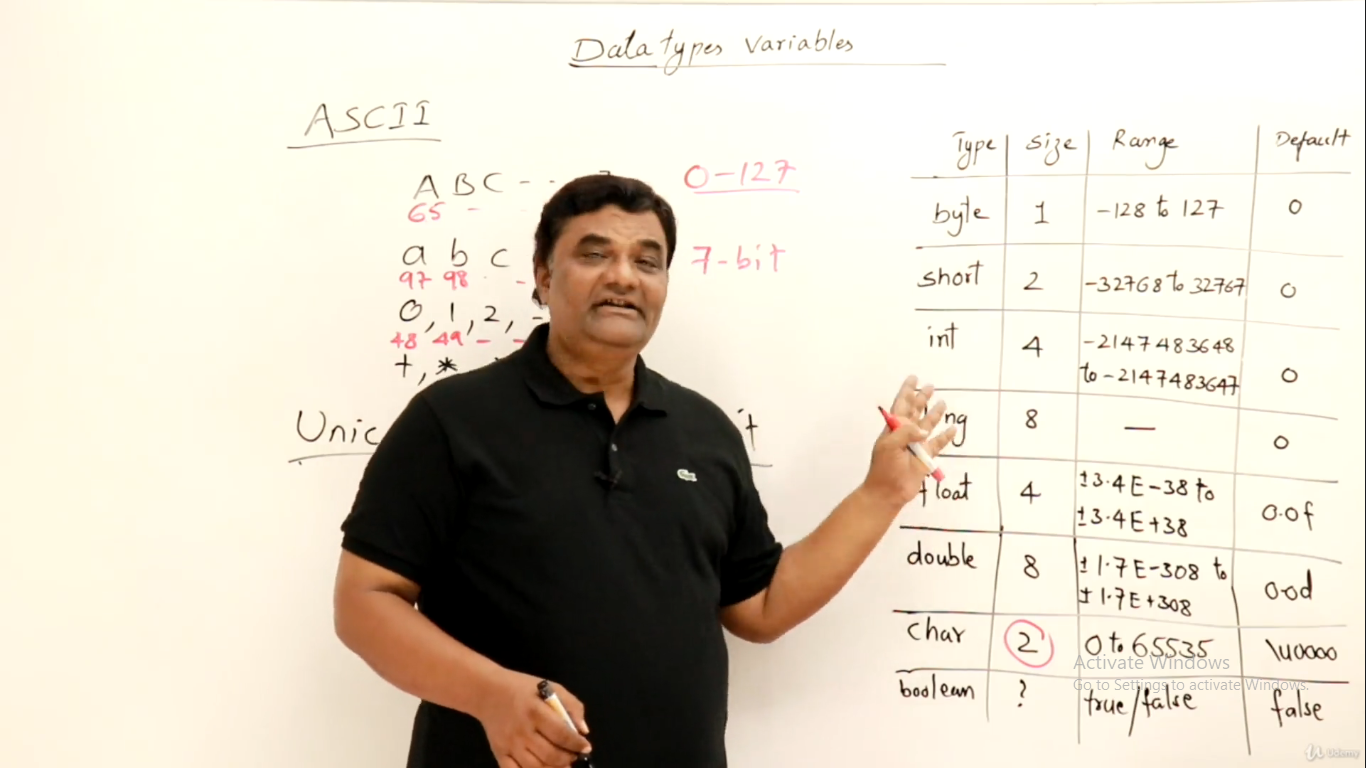 Data types Variables
ASCII
A B C - -
65 -
0-127
a b c
97 98 -
7-bit
0, 1, 2, -
48 49 - -
+, *
Unic
it
Type Size Range Default
byte 1 -128 to 127 0
short 2 -32768 to 32767 0
int 4 -2147483648
to -2147483647 0
ng 8 — 0
float 4 ±3.4E-38 to
±3.4E+38 0.0f
double 8 ±1.7E-308 to
±1.7E+308 0.0d
char 2 0 to 65535 \u0000
boolean ? true/false false
Activate Windows
Go to Settings to activate Windows.
Udemy